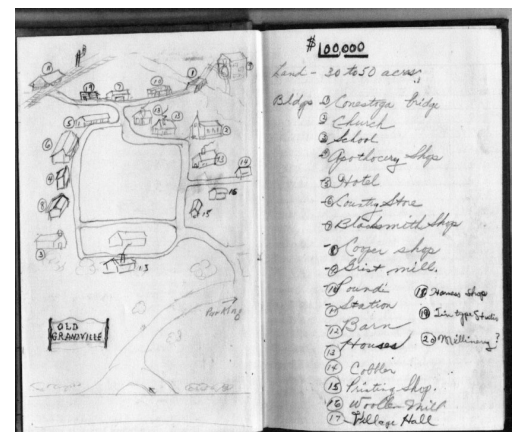 OLD
GRANVILLE
Parking
$100,000
Land - 30 to 50 acres
Bldgs - ① Conestoga bridge
② Church
③ School
④ Apothocery Shop
⑤ Hotel
⑥ Country Store
⑦ Blacksmith Shop
⑧ Cooper shop
⑨ Grist mill.
⑩ Pound
⑪ Station
⑫ Barn
⑬ Houses
⑭ Cobbler
⑮ Printing Shop.
⑯ Woolen Mill
⑰ Village Hall
⑱ Harness Shop
⑲ Tin type Studio
⑳ Millinery?